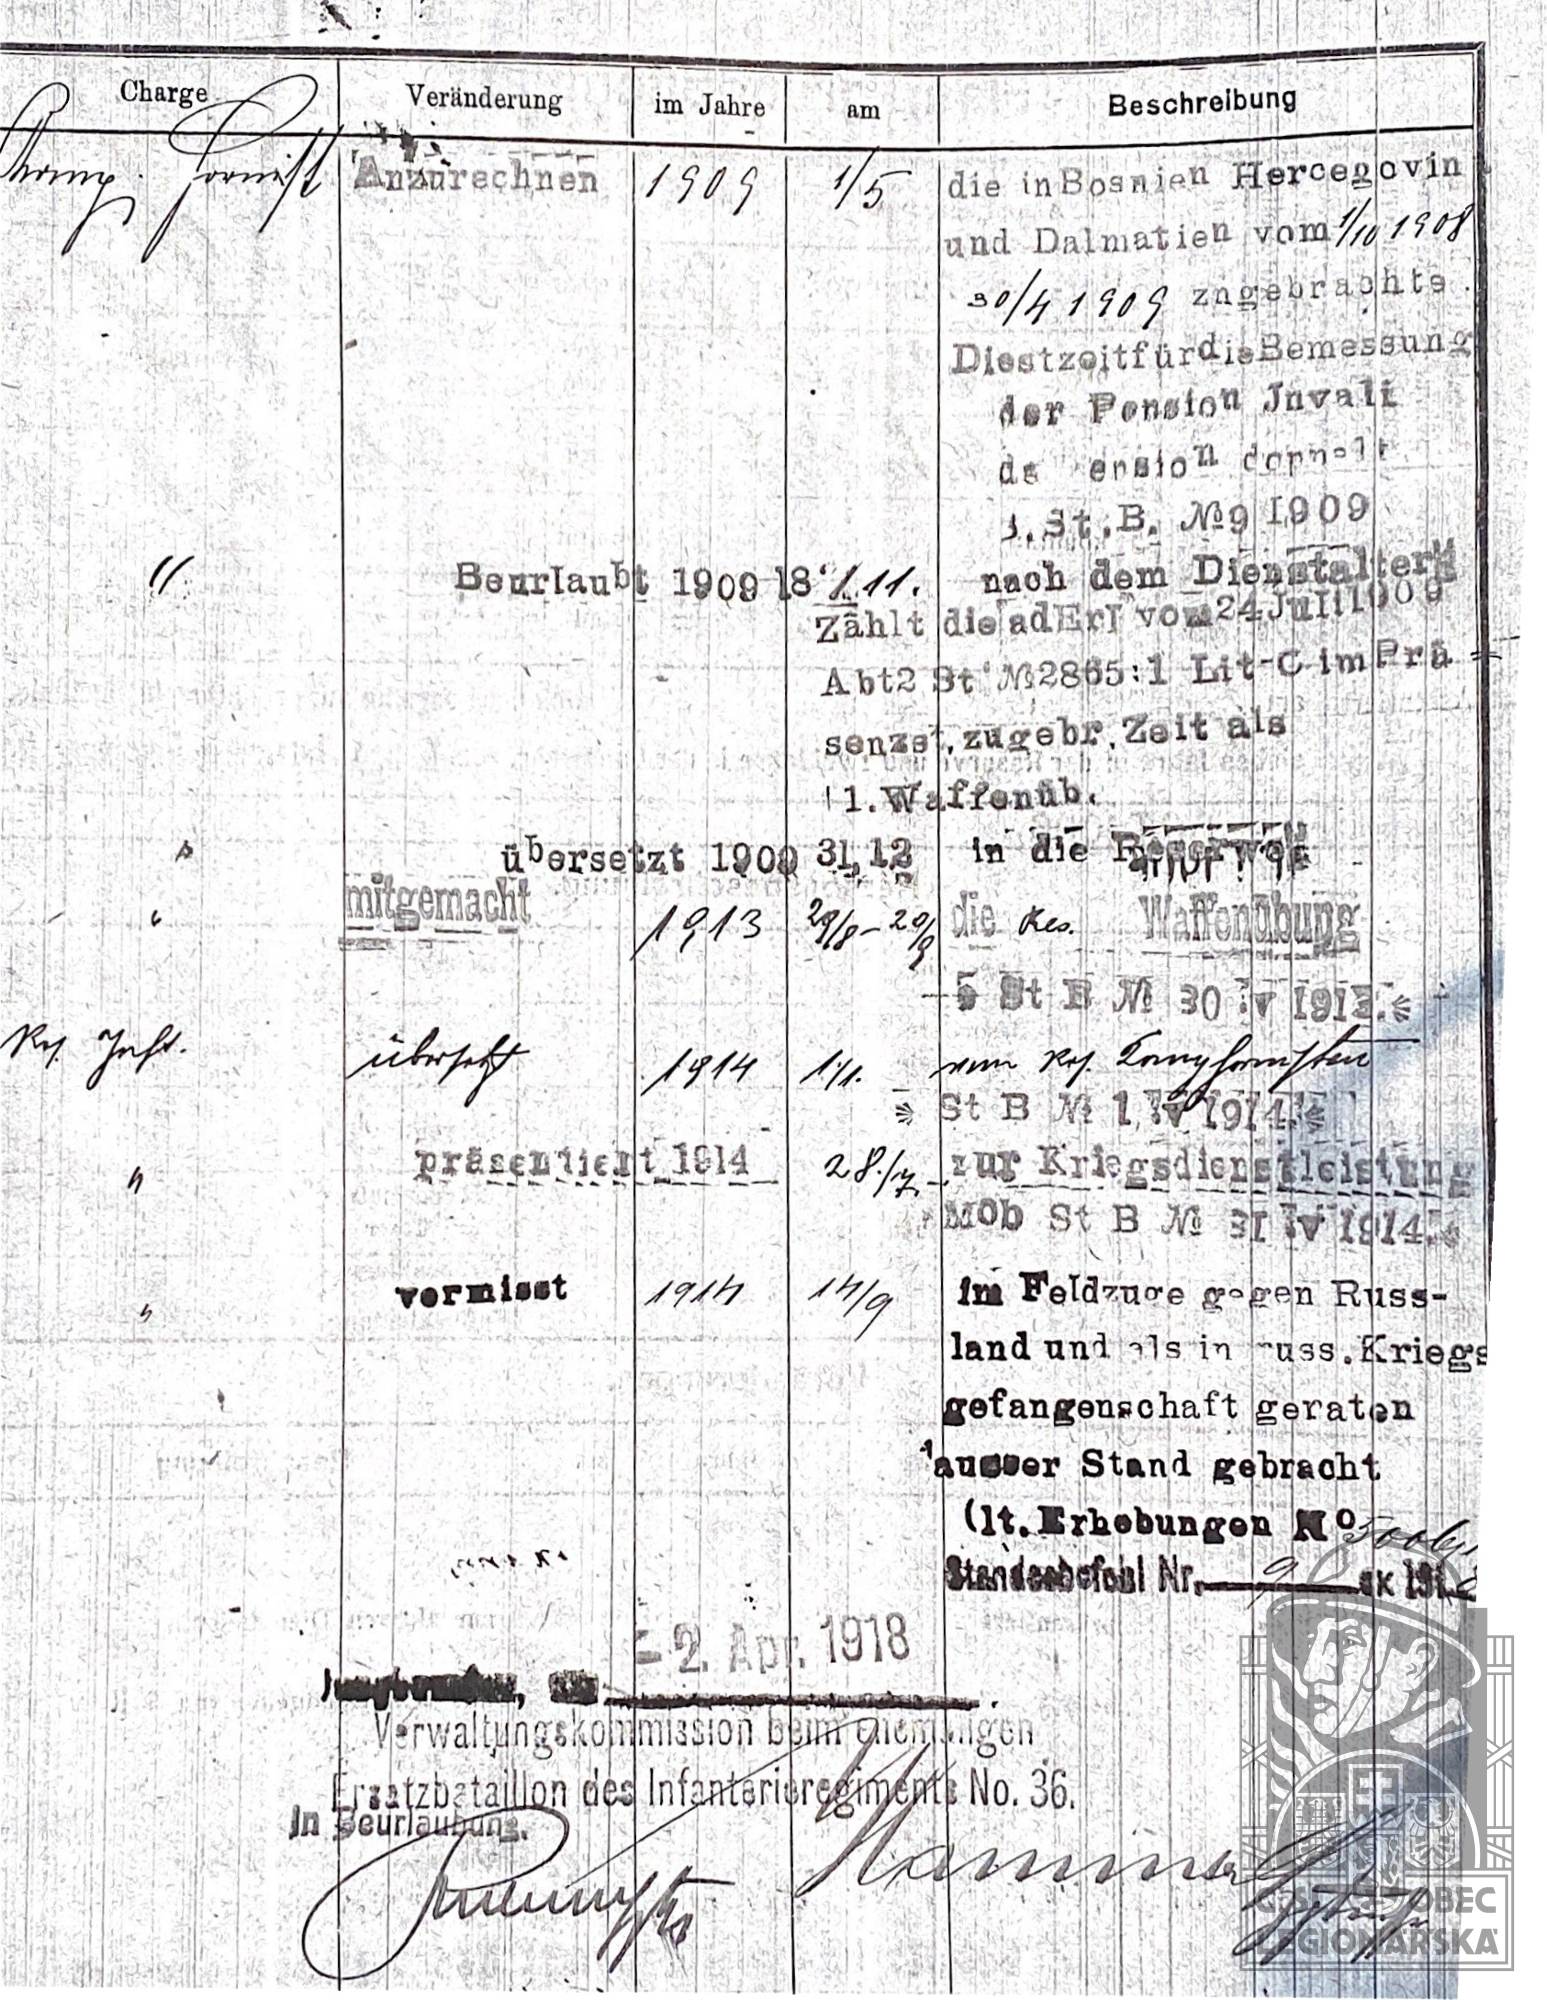 Charge Veränderung im Jahre am Beschreibung
Komp. Hornist Anzurechnen 1909 1/5 die in Bosnien Hercegovin
und Dalmatien vom 1/10 1908
30/4 1909 zngebrachte
Diestzeit für die Bemessung
der Pension Jnvali
de ension doppelt
j. St. B. № 9 1909
" Beurlaubt 1909 18 / 11. nach dem Dienstalter
Zählt die ad Erl vom 24 Juli 1909
Abt 2 St № 2865:1 Lit-C im Prä
senzst. zugebr. Zeit als
1. Waffenüb.
" übersetzt 1909 31,12 in die Reserve
" mitgemacht 1913 29/8-20/9 die Res. Waffenübung
St B № 30 IV 1913.
Res. Inft. übersetzt 1914 1./1. vom Res. Komphornisten
St B № 1 IV 1914.
" präsentiert 1914 28./7. zur Kriegsdienstleistung
Mob St B № 31 IV 1914.
" vermisst 1914 14/9 im Feldzuge gegen Russ-
land und als in russ. Kriegs
gefangenschaft geraten
ausser Stand gebracht
(lt. Erhebungen No
Standesbefehl Nr. 9 ex 191
- 2. Apr. 1918
Verwaltungskommission beim ehemaligen
Ersatzbataillon des Infanterieregiments No. 36.
In Beurlaubung.
OBEC
LEGIONÁŘSKÁ